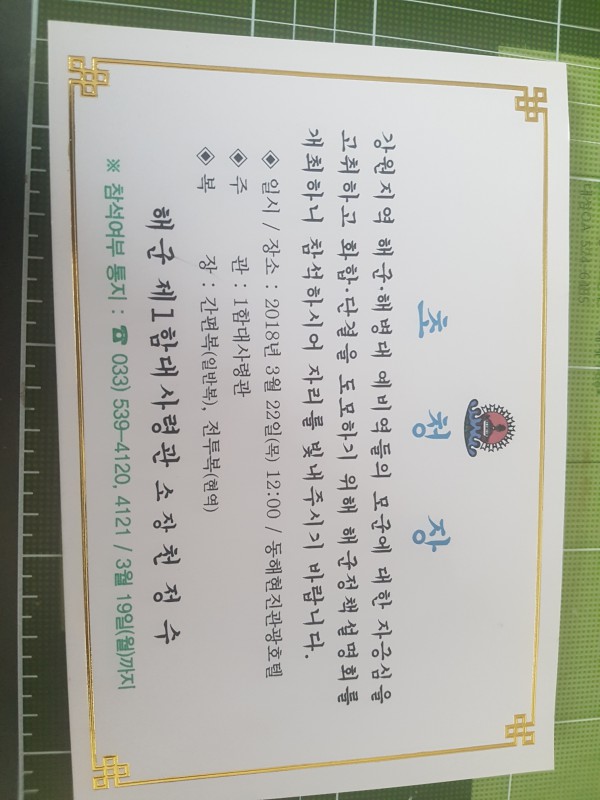 초 청 장
강원지역 해군·해병대 예비역들의 모군에 대한 자긍심을
고취하고 화합·단결을 도모하기 위해 해군정책설명회를
개최하니 참석하시어 자리를 빛내주시기 바랍니다.
◈ 일시 / 장소 : 2018년 3월 22일(목) 12:00 / 동해현진관광호텔
◈ 주 관 : 1함대사령관
◈ 복 장 : 간편복(일반복), 전투복(현역)
해군 제1함대사령관 소장 천정수
※ 참석여부 통지 : ☎ 033) 539-4120, 4121 / 3월 19일(월)까지